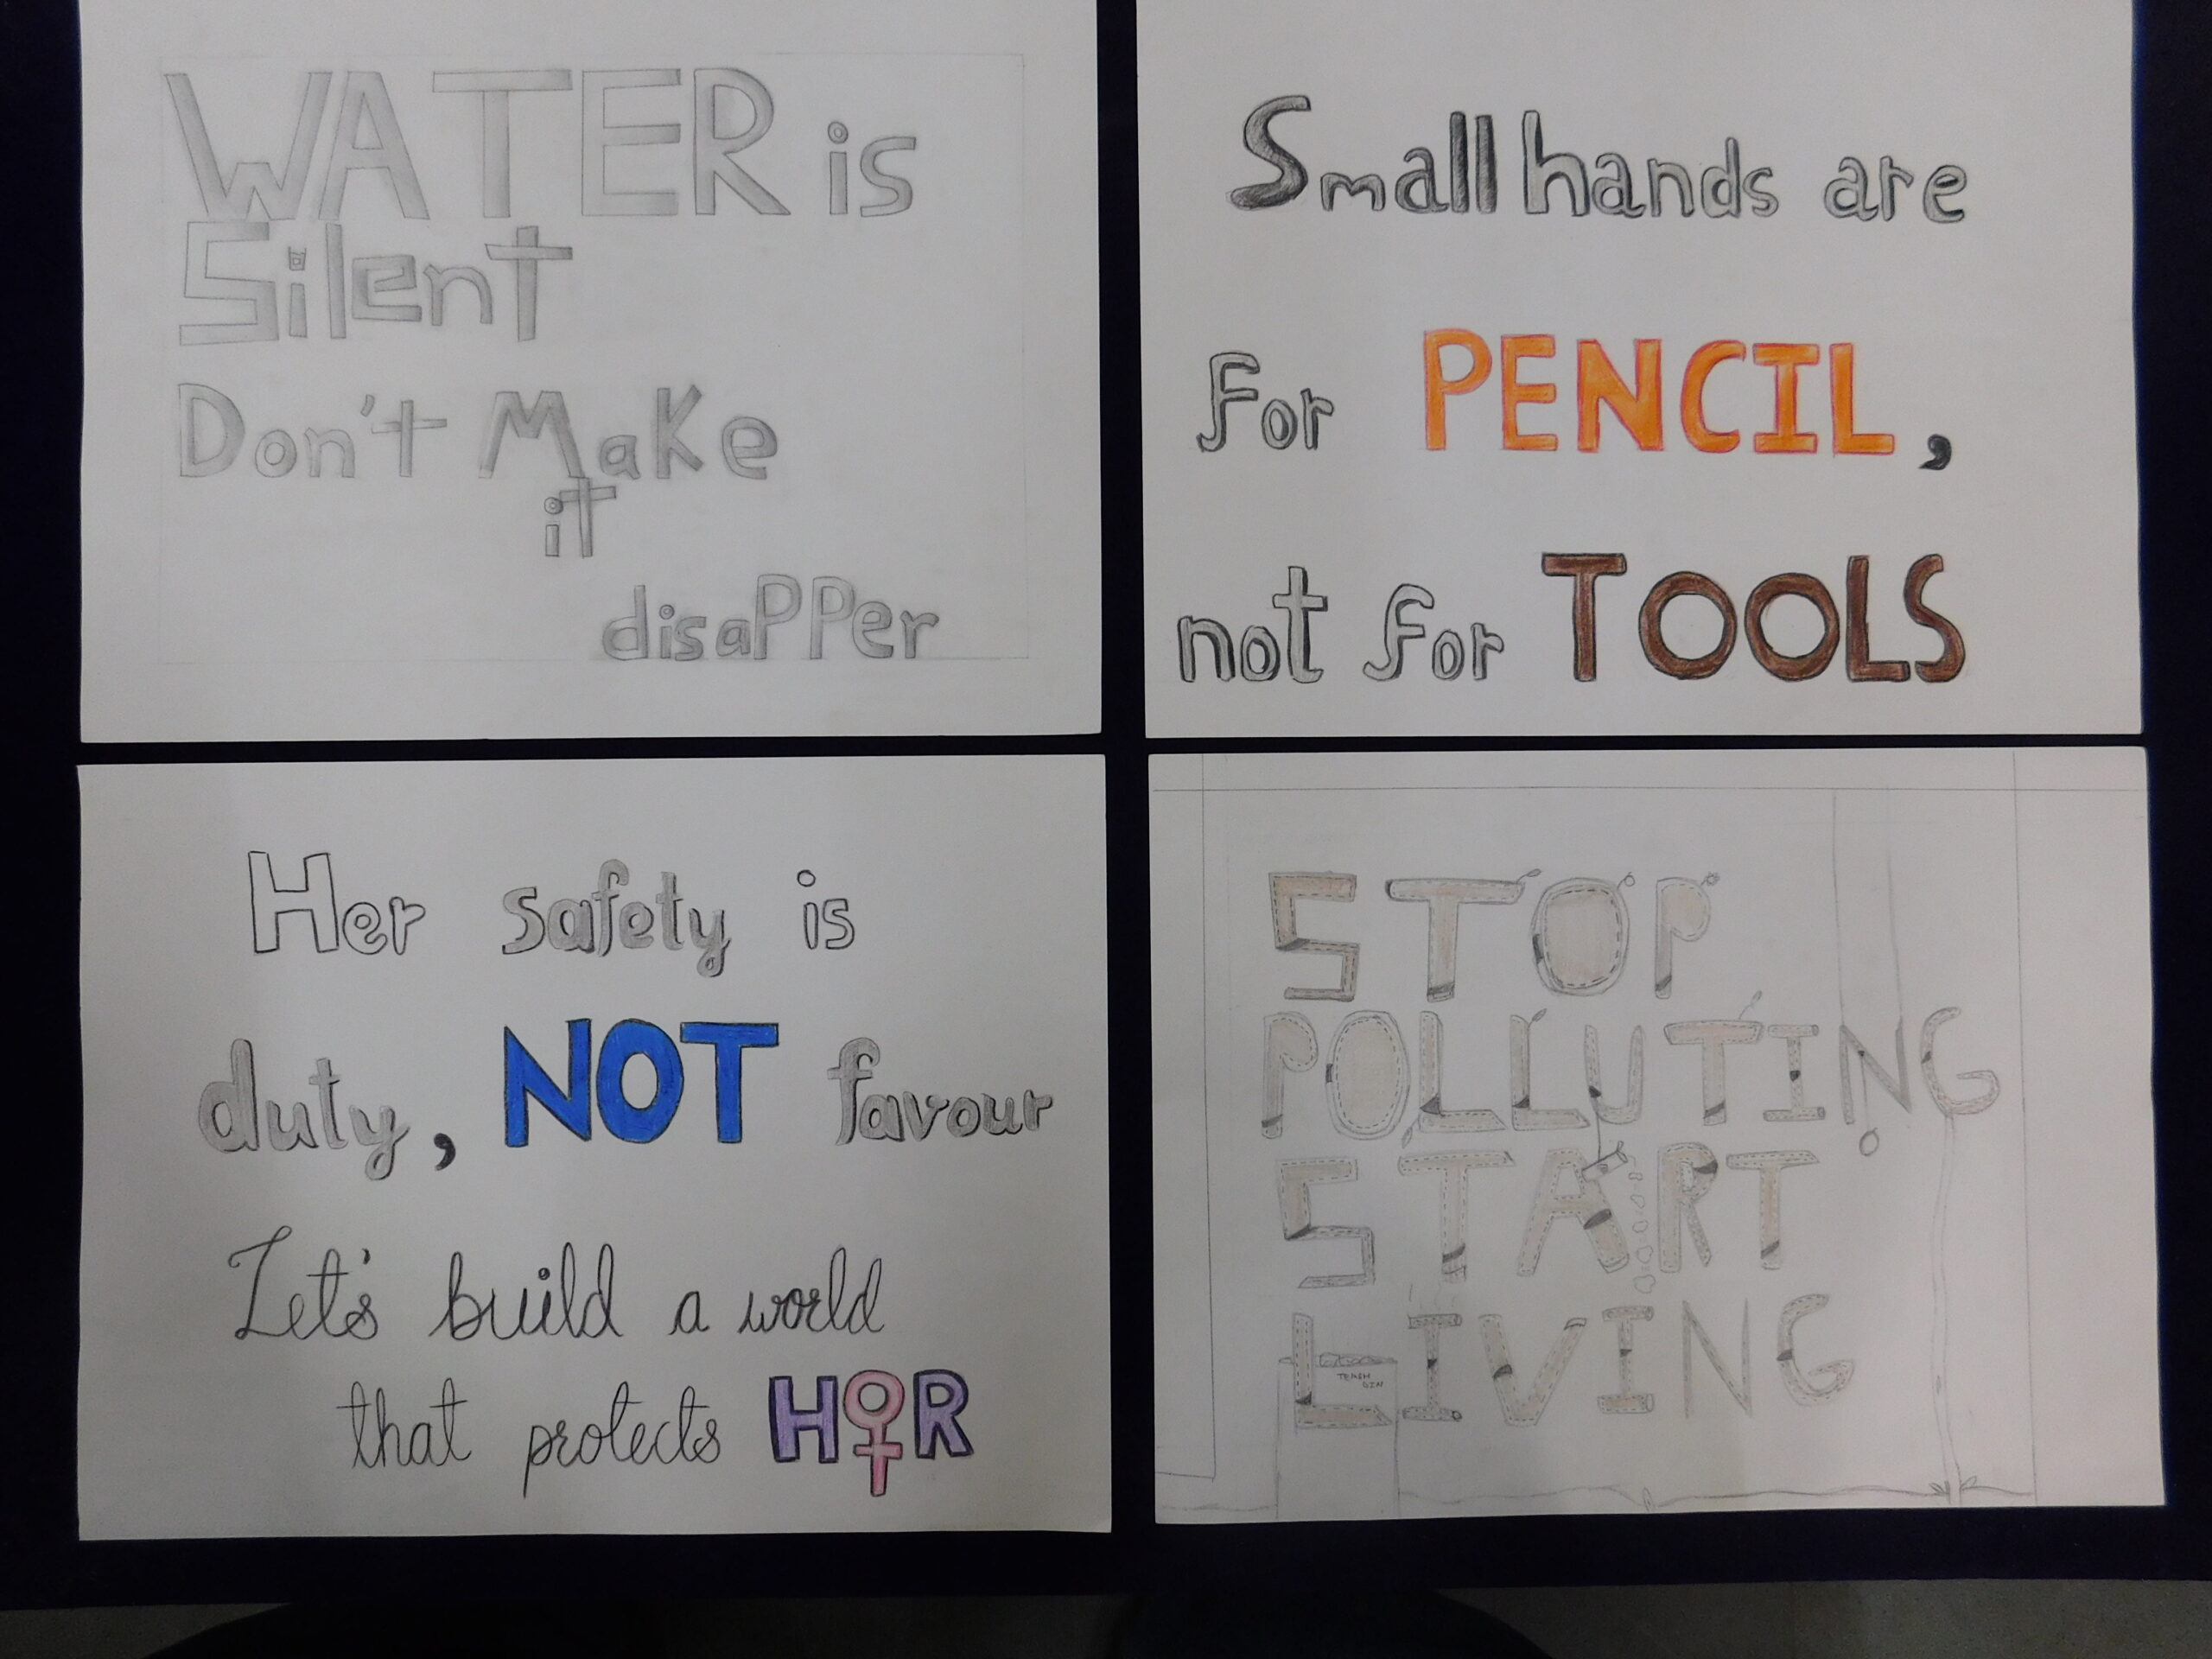 WATER is
Silent
Don't Make
it
disaPPer
Small hands are
for PENCIL,
not for TOOLS
Her safety is
duty, NOT favour
Let's build a world
that protects H♀R
STOP
POLLUTING
START
LIVING
TRASH
BIN